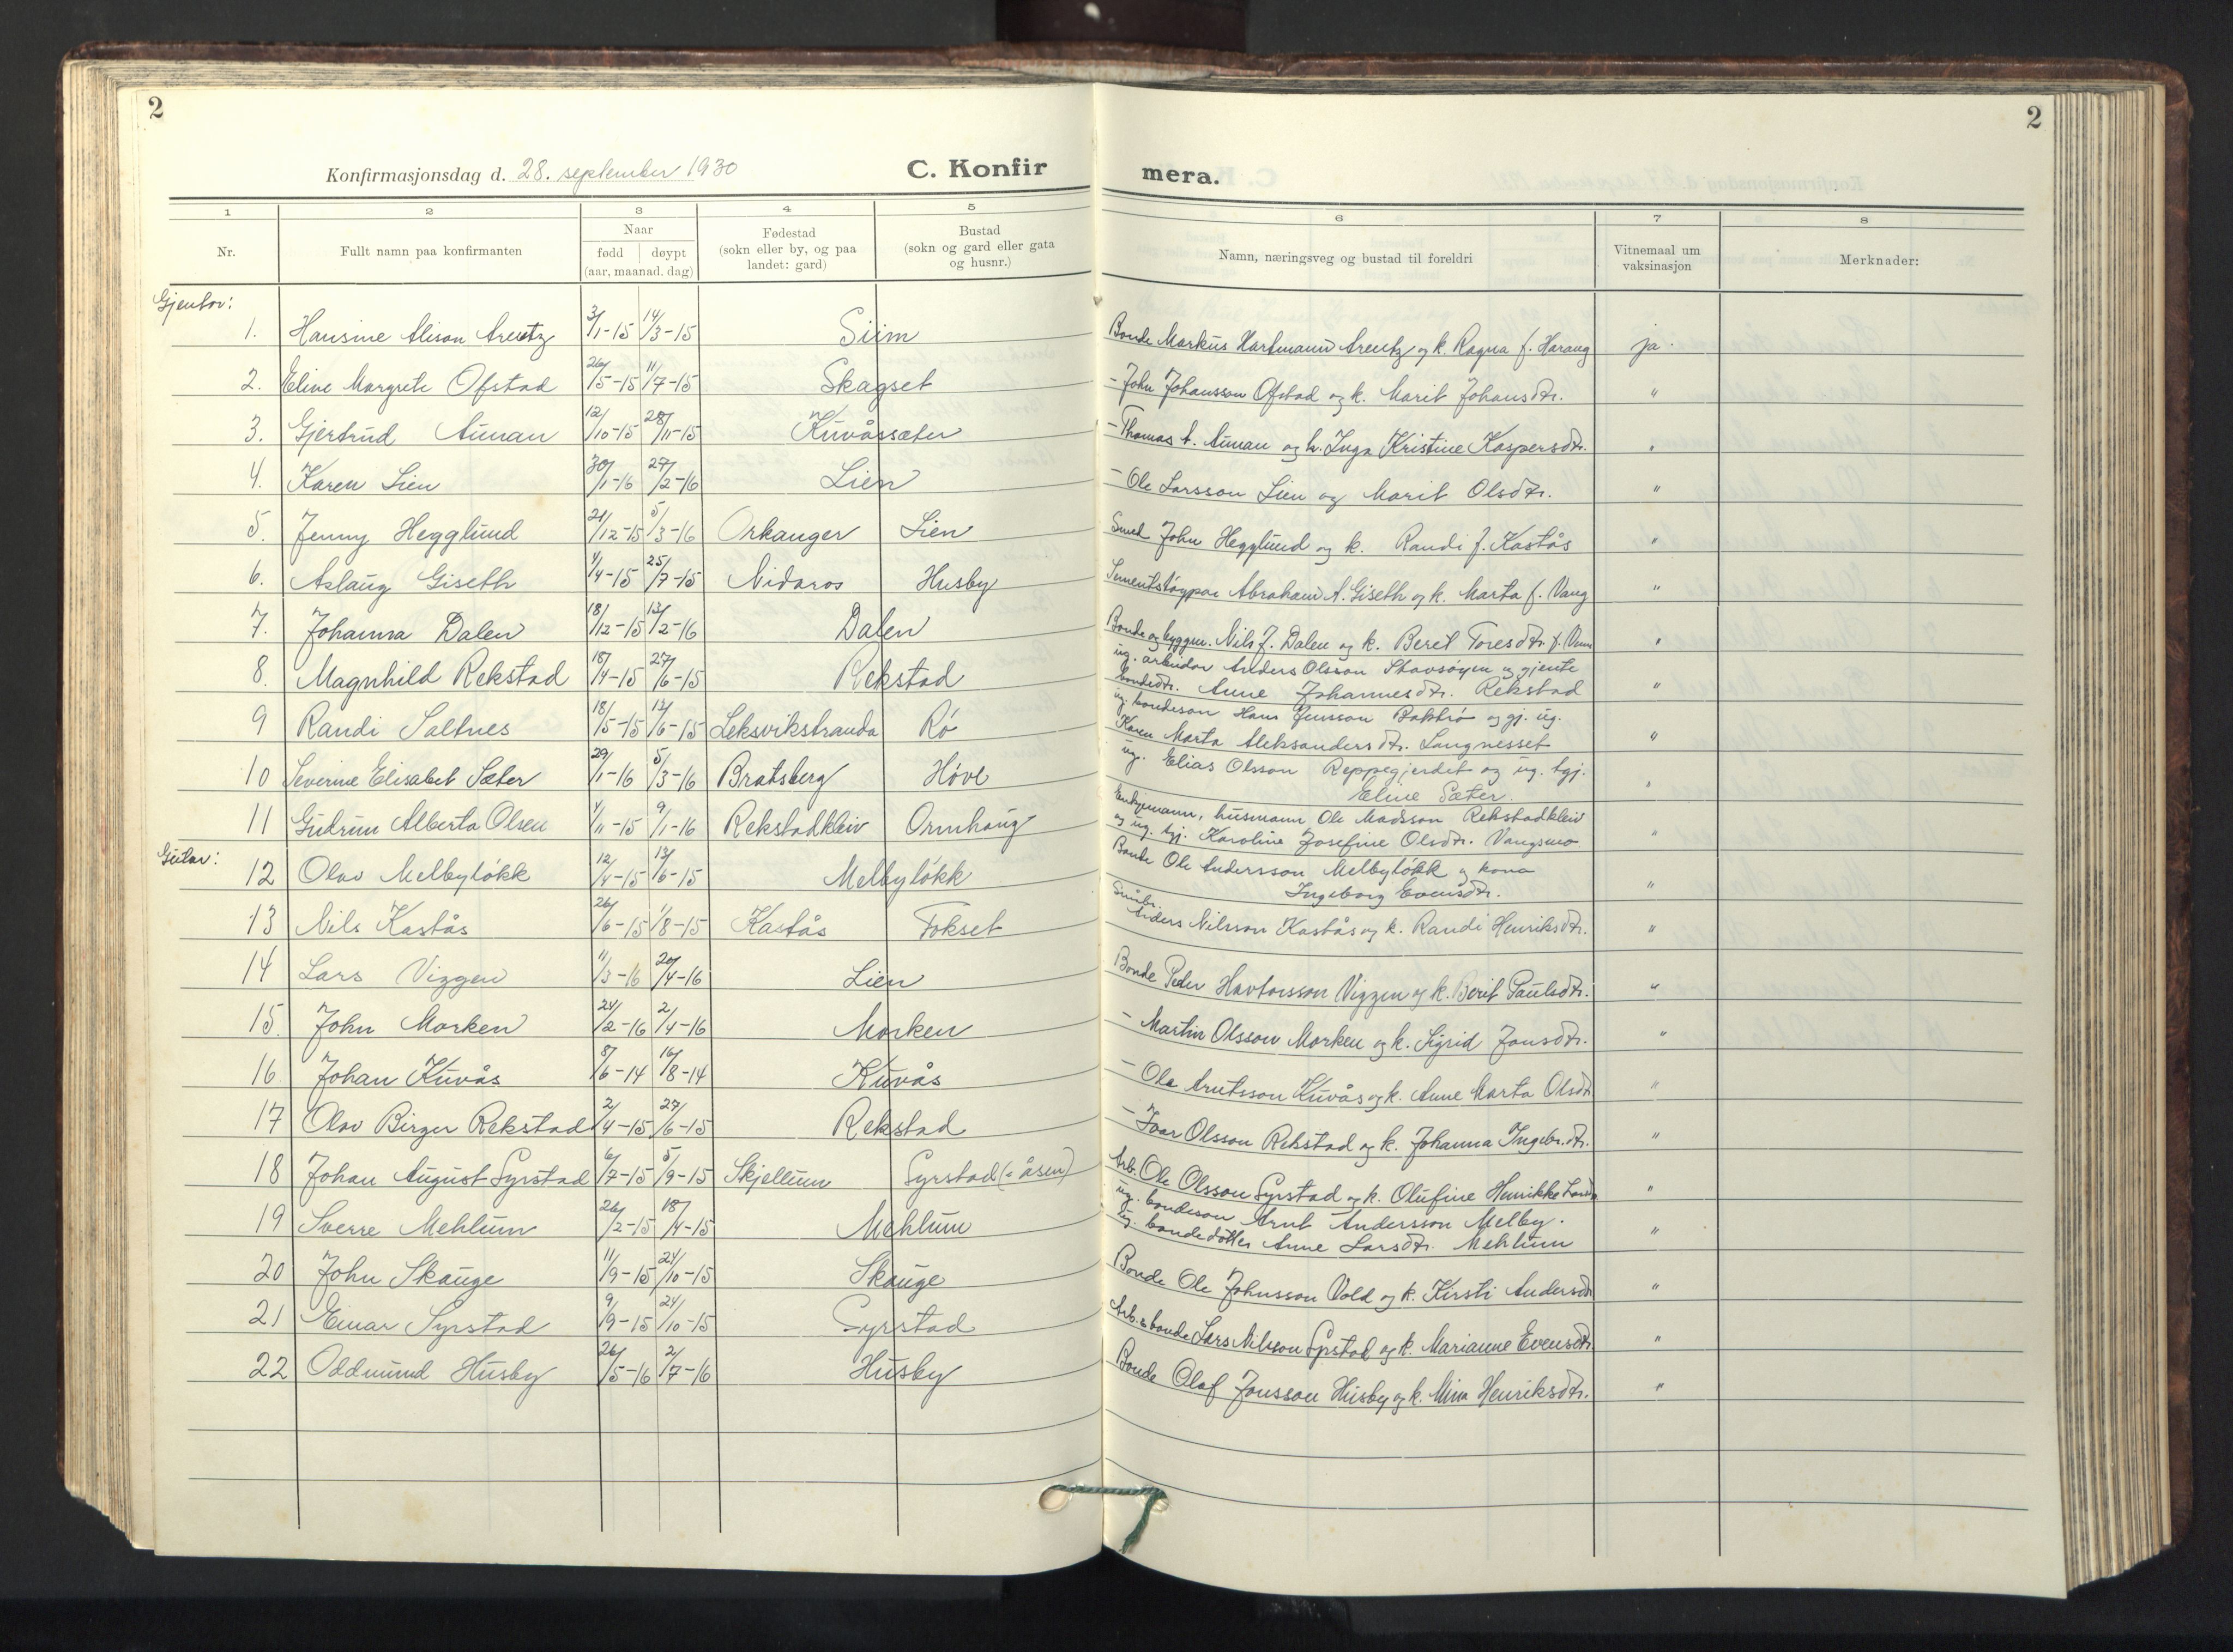 2
2
Konfirmasjonsdag d. 28. september 1930
C. Konfir
mera.
1 2 3 4 5
6 7 8
Nr.
Fullt namn paa konfirmanten
Naar
fødd døypt
(aar, maanad. dag)
Fødestad
(sokn eller by, og paa
landet: gard)
Bustad
(sokn og gard eller gata
og husnr.)
Namn, næringsveg og bustad til foreldri
Vitnemaal um
vaksinasjon
Merknader:
Gjentor:
1. Hansine Alison Arentz 3/1-15 14/3-15 Siim Bonde Markus Hartmann Arentz og k. Ragna f. Harang ja.
2. Eline Margrete Ofstad 26/5-15 11/7-15 Skagset - John Johansson Ofstad og k. Marit Johansdtr. "
3. Gjertrud Aunan 12/10-15 28/11-15 Kuvåssæter - Thomas Aunan og k. Inga Kristine Kaspersdtr. "
4. Karen Lien 30/1-16 27/2-16 Lien - Ole Larsson Lien og Marit Olsdtr. "
5. Jenny Hegglund 21/12-15 5/3-16 Orkanger Lien Smed John Hegglund og k. Randi f. Kastås "
6. Aslaug Giseth 4/4-15 25/7-15 Nidaros Husby Sementstøypar Abraham A. Giseth og k. Marta f. Vang "
7. Johanna Dalen 18/12-15 13/2-16 Dalen Bonde og byggm. Nils J. Dalen og k. Beret Toresdtr. f. "
8. Magnhild Rekstad 18/4-15 27/6-15 Rekstad ug. arbeidar Anders Olsson Stavsøyen og gjente
bondedtr. Anne Johannesdtr. Rekstad "
9 Randi Saltnes 18/5-15 13/6-15 Leksvikstranda Rø ug. bondeson Hans Jensson og gj. ug.
Karen Marta Aleksandersdtr. Langnesset "
10 Severine Elisabet Sæter 29/1-16 5/3-16 Bratsberg Høve ug. Elias Olsson Reppegjerdet og ug. tgj.
Eline Sæter. "
11 Gudrun Alberta Olsen 4/11-15 9/1-16 Rekstadkleiv Ormhaug Enkjemann, husmann Ole Madsson Rekstadkleiv
og ug. tgj. Karoline Josefine Olsdtr. Vangsmo "
Gutar:
12 Olav Melbyløkk 12/4-15 13/6-15 Melbyløkk Bonde Ole Andersson Melbyløkk og kona
Ingeborg Evensdtr. "
13 Nils Kastås 26/6-15 1/8-15 Kastås Fokset Småbr.
Anders Nilsson Kastås og k. Randi Henriksdtr. "
14 Lars Viggen 11/3-16 20/4-16 Lien Bonde Peder Havtorsson Viggen og k. Berit Paulsdtr. "
15. John Morken 24/2-16 2/4-16 Morken - Martin Olsson Morken og k. Sigrid Jonsdtr. "
16. Johan Kuvås 8/6-14 16/8-14 Kuvås - Ola Arntsson Kuvås og k. Anne Marta Olsdtr "
17 Olav Birger Rekstad 2/4-15 27/6-15 Rekstad - Ivar Olsson Rekstad og k. Johanna Ingebr.dtr. "
18 Johan August Syrstad 6/7-15 5/9-15 Skjellum Syrstad (-åsen) Arb. Ole Olsson Syrstad og k. Olufine Henrikke "
19 Sverre Mehlum 26/2-15 18/4-15 Mehlum ug. bondeson Arnt Andersson Melby.
ug. bondedotter Anne Larsdtr. Mehlum "
20 John Skauge 11/9-15 24/10-15 Skauge Bonde Ole Johnsson Vold og k. Kirsti Andersdtr "
21 Einar Syrstad 9/9-15 24/10-15 Syrstad Arb. & bonde Lars Nilsson Syrstad og k. Marianne Evensdtr. "
22 Oddmund Husby 26/5-16 2/7-16 Husby Bonde Olaf Jonsson Husby og k. Mina Henriksdtr. "